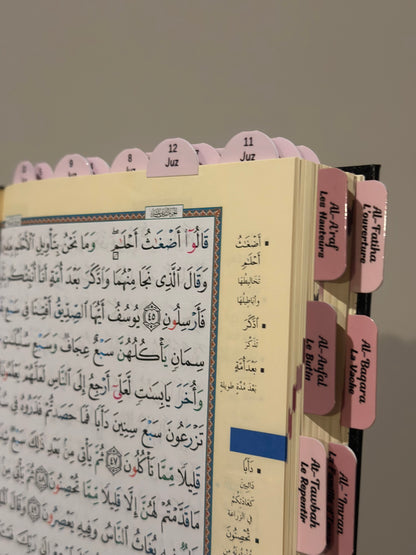 9
8
Juz
12
Juz
11
Juz
قَالُوٓا۟ أَضْغَٰثُ أَحْلَٰمٍۖ وَمَا نَحْنُ بِتَأْوِيلِ ٱلْأَحْلَٰمِ
وَقَالَ ٱلَّذِى نَجَا مِنْهُمَا وَٱدَّكَرَ بَعْدَ أُمَّةٍ أَنَا۠ أُنَبِّئُكُم
فَأَرْسِلُونِ ٤٥ يُوسُفُ أَيُّهَا ٱلصِّدِّيقُ أَفْتِنَا فِى سَبْعِ
سِمَانٍ يَأْكُلُهُنَّ سَبْعٌ عِجَافٌ وَسَبْعِ سُنۢبُلَٰتٍ
وَأُخَرَ يَابِسَٰتٍ لَّعَلِّىٓ أَرْجِعُ إِلَى ٱلنَّاسِ لَعَلَّهُمْ يَعْلَمُونَ
تَزْرَعُونَ سَبْعَ سِنِينَ دَأَبًا فَمَا حَصَدتُّمْ فَذَرُوهُ فِى
قَلِيلًا مِّمَّا تَأْكُلُونَ ٤٧ ثُمَّ يَأْتِى مِنۢ بَعْدِ ذَٰلِكَ سَبْعٌ
مَا قَدَّمْتُمْ لَهُنَّ إِلَّا قَلِيلًا مِّمَّا تُحْصِنُونَ
فِيهِ يُغَاثُ ٱلنَّاسُ وَفِيهِ يَعْصِرُونَ
أَضْغَٰثُ
أَحْلَٰمٍ
تخاليطها
وأباطيلها
ٱدَّكَرَ
تذكر
بَعْدَ أُمَّةٍ
بعد مدة طويلة
دَأَبًا
دائبين
كعادتكم
في الزراعة
تُحْصِنُونَ
Al-A'raf
Les Hauteurs
Al-Fatiha
L'ouverture
Al-Anfal
Le Butin
Al-Baqara
La Vache
At-Tawbah
Le Repentir
Al-'Imran